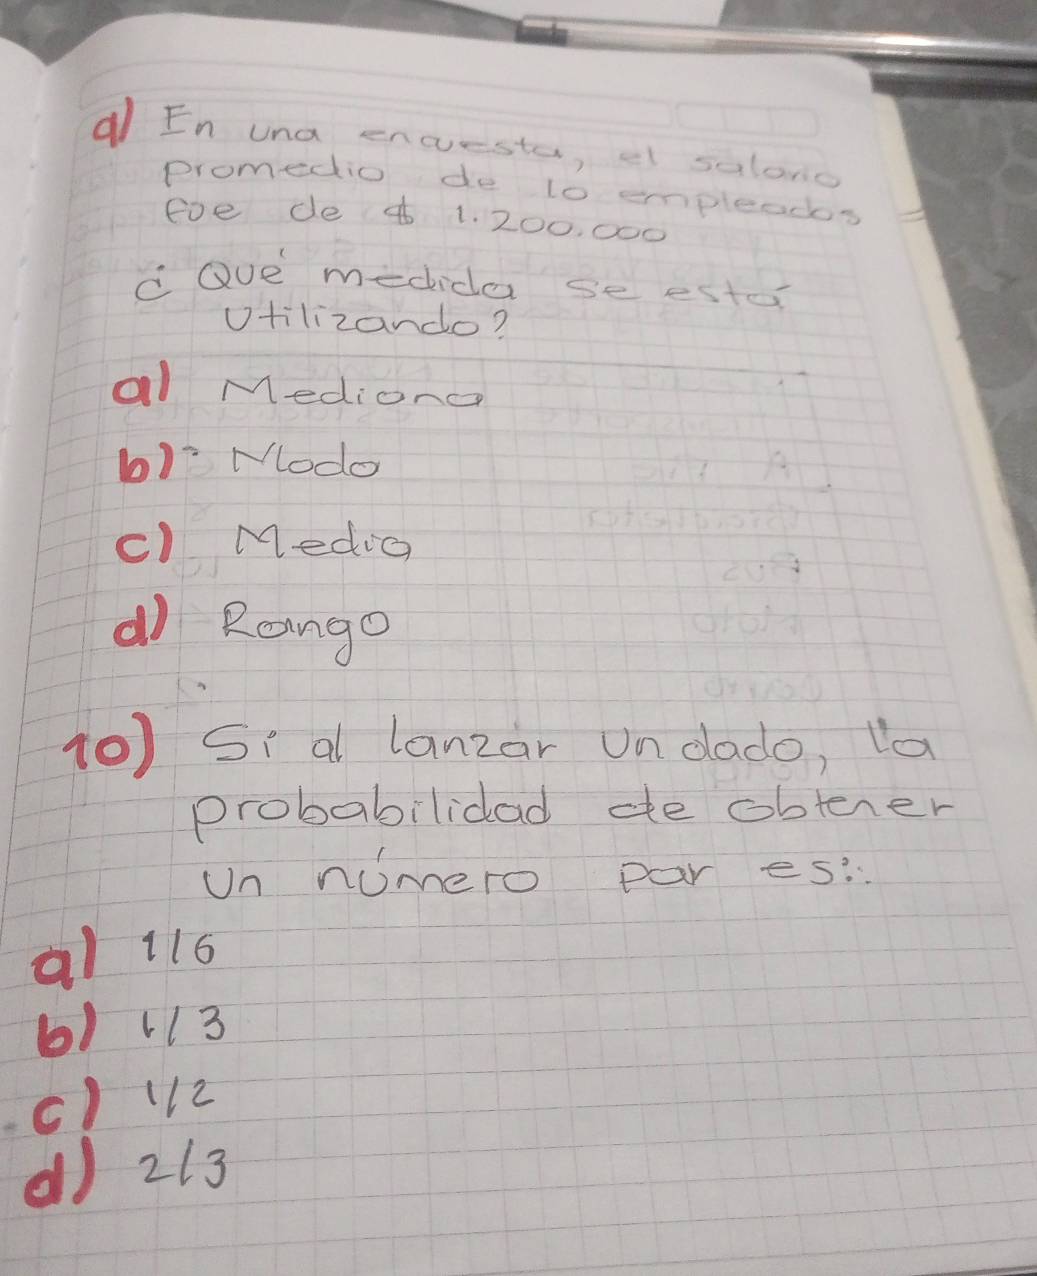 9) En una encuesta, el salario
promedio de 10 empleados
foe de $ 1.200.000
¿ Qué medida se está
Utilizando?
a) Mediana
b) Modo
c) Media
d) Rango
10) Si al lanzar un dado, la
probabilidad de obtener
un número par es:
a) 1/6
b) 1/3
c) 1/2
d) 2/3